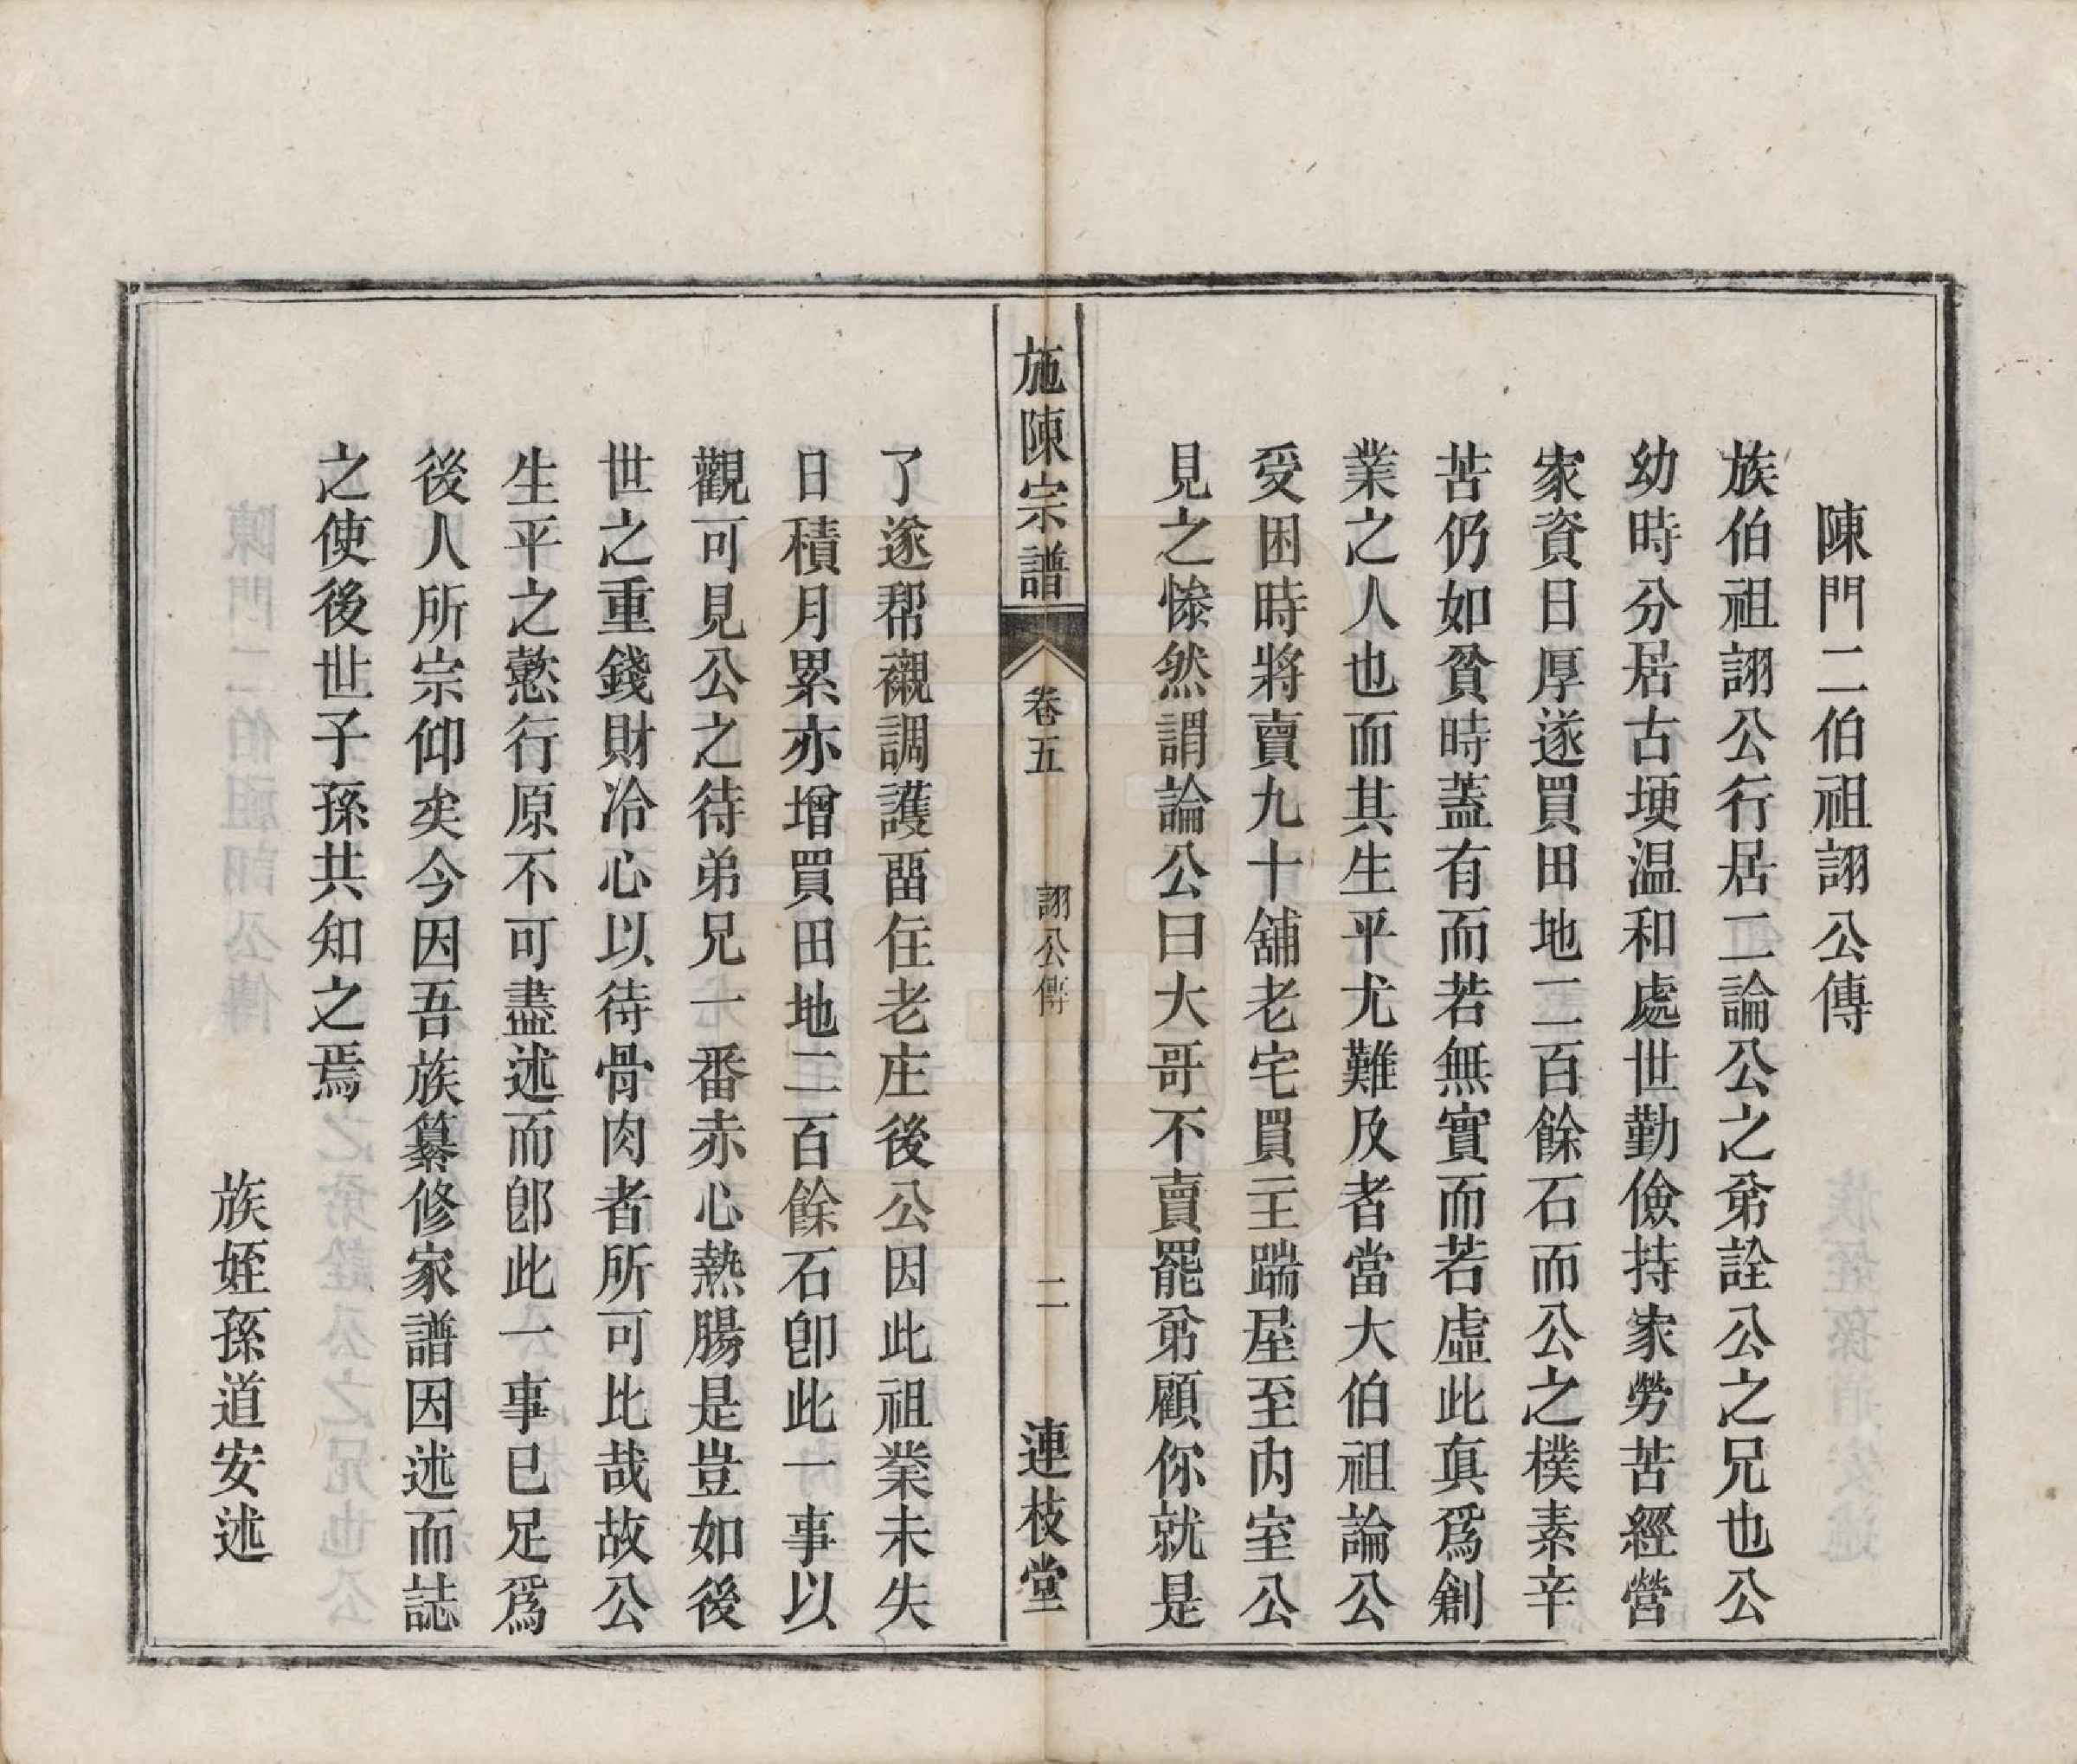 陳門二伯祖詡公傳
族伯祖詡公行居二論公之弟詮公之兄也公
幼時分居古堧温和處世勤儉持家勞苦經營
家資日厚遂買田地二百餘石而公之樸素辛
苦仍如貧時蓋有而若無實而若虛此真爲創
業之人也而其生平尤難及者當大伯祖論公
受困時將賣九十舖老宅買主踹屋至內室公
見之慘然謂論公曰大哥不賣罷弟顧你就是
施陳宗譜
卷五
詡公傳
二
連枝堂
了遂帮襯調護畱住老庄後公因此祖業未失
日積月累亦增買田地二百餘石卽此一事以
觀可見公之待弟兄一番赤心熱腸是豈如後
世之重錢財冷心以待骨肉者所可比哉故公
生平之懿行原不可盡述而卽此一事已足爲
後人所宗仰矣今因吾族纂修家譜因述而誌
之使後世子孫共知之焉
族姪孫道安述